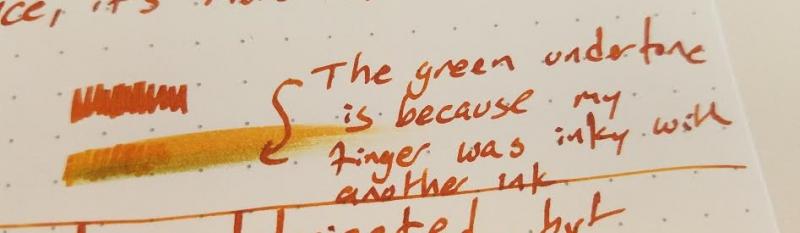 ce, it's
The green undertone
is because my
finger was inky with
another ink
but